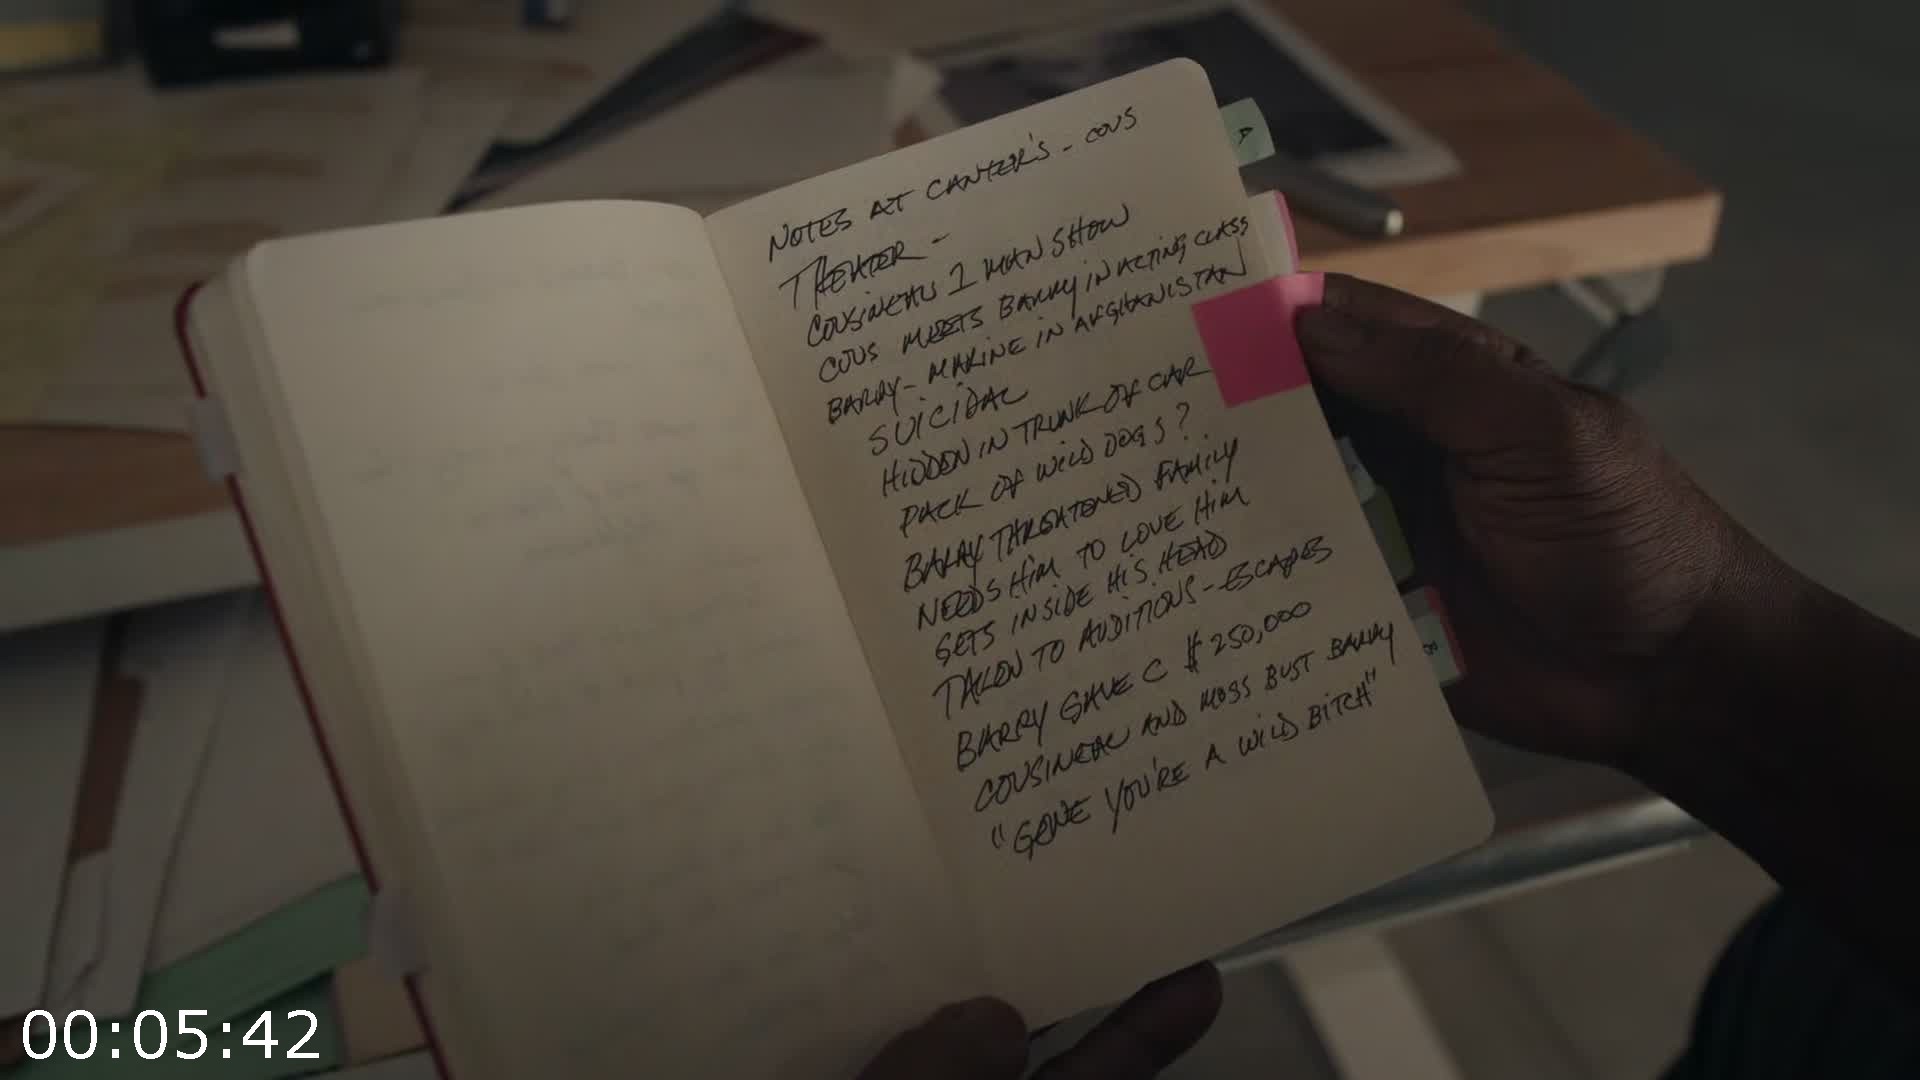 NOTES AT CANTER'S - COUS
THEATER -
COUSINEAU 1 MAN SHOW
COUS MEETS BARRY IN ACTING CLASS
BARRY - MARINE IN AFGHANISTAN
SUICIDAL
HIDDEN IN TRUNK OF CAR
PACK OF WILD DOGS?
BARRY THREATENED FAMILY
NEEDS HIM TO LOVE HIM
GETS INSIDE HIS HEAD
TAKEN TO AUDITIONS - ESCAPES
BARRY GAVE C $250,000
COUSINEAU AND MOSS BUST BARRY
"GENE YOU'RE A WILD BITCH"
00:05:42